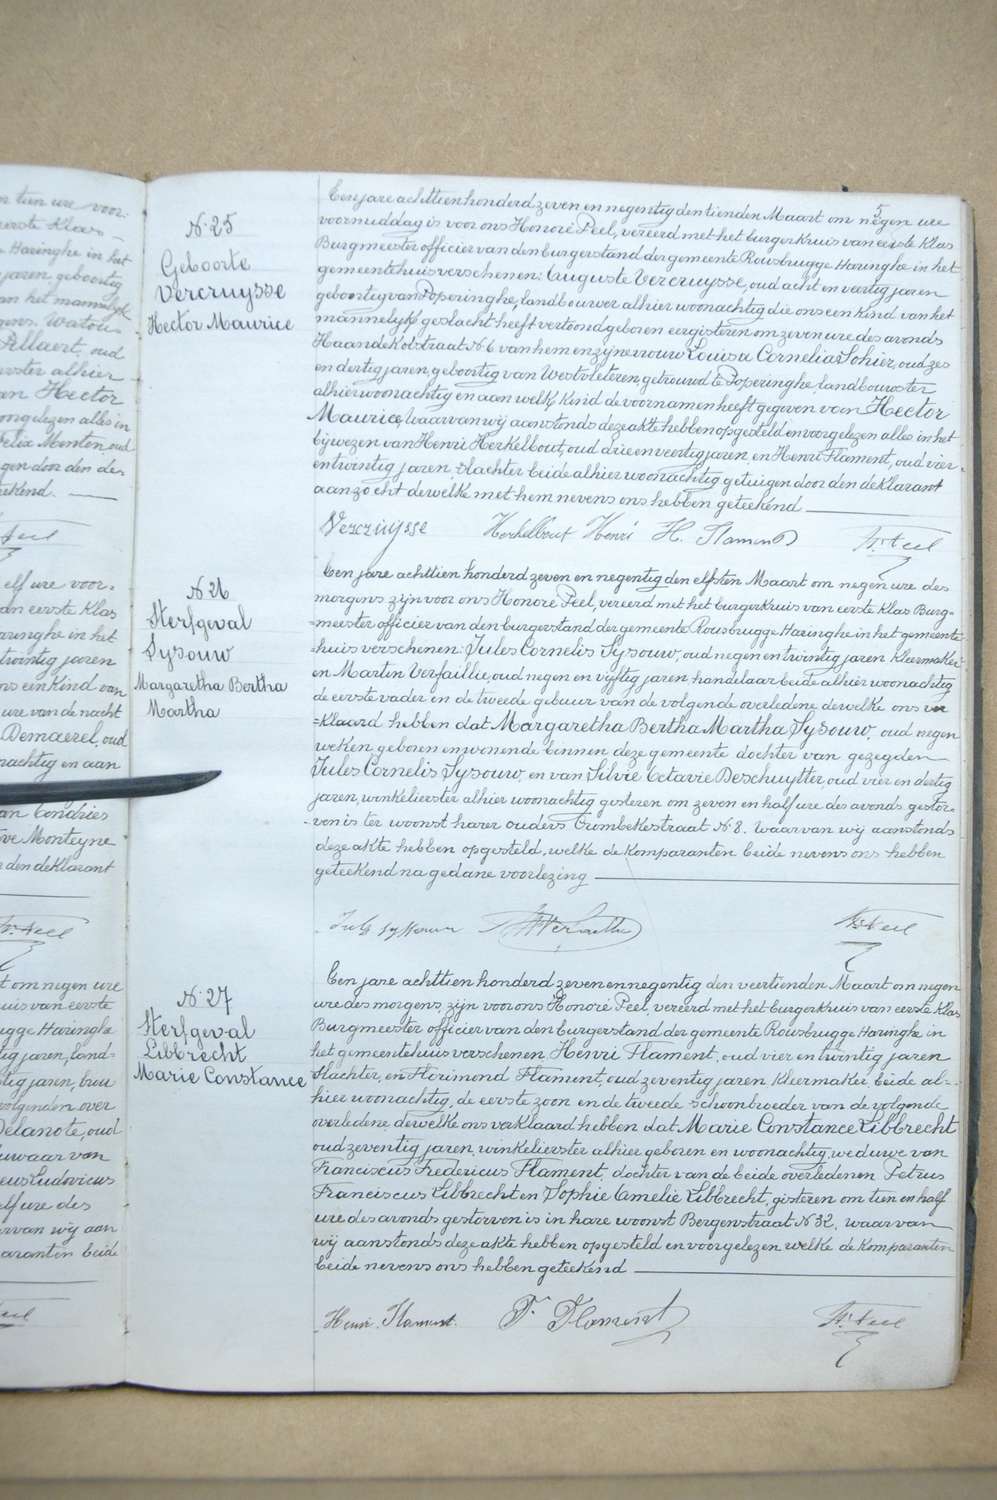 5
N: 25
Geboorte
Vercruysse
Hector Maurice
Een jare achttien honderd zeven en negentig den tienden Maart om negen ure
voormiddag is voor ons Honoré Peel, vereerd met het burgerkruis van eerste Klas
Burgmeester officier van den burgerstand der gemeente Rousbrugge Haringhe in het
gemeentehuis verschenen: Auguste Vercruysse, oud acht en veertig jaren
geboortig van Poperinghe, landbouwer alhier woonachtig die ons een kind van het
mannelijk geslacht heeft vertoond geboren eergisteren om zeven ure des avonds
Haandekotstraat N: 6 van hem en zijne vrouw Louisa Cornelia Sohier, oud zes
en dertig jaren, geboortig van Westvleteren, getrouwd te Poperinghe, landbouwster
alhier woonachtig en aan welk kind de voornamen heeft gegeven van Hector
Maurice, Waarvan wij aanstonds deze akte hebben opgesteld en voorgelezen alles in het
bijwezen van Henri Herkelbout, oud drie en veertig jaren en Henri Flament, oud vier-
en twintig jaren, slachter beide alhier woonachtig getuigen door den deklarant
aanzocht dewelke met hem nevens ons hebben geteekend
Vercruysse Herkelbout Henri H. Flament H: Peel
N: 26
Sterfgeval
Sysouw
Margaretha Bertha
Martha
Een jare achttien honderd zeven en negentig den elfsten Maart om negen ure des
morgens zijn voor ons Honoré Peel, vereerd met het burgerkruis van eerste Klas Burg=
=meester officier van den burgerstand der gemeente Rousbrugge Haringhe in het gemeente=
=huis verschenen: Jules Cornelis Sysouw, oud negen en twintig jaren kleermaker
en Martin Verfaillie, oud negen en vijftig jaren handelaar beide alhier woonachtig
de eerste vader en de tweede gebuur van de volgende overledene dewelke ons ver
=klaard hebben dat Margaretha Bertha Martha Sysouw, oud negen
weken geboren en wonende binnen deze gemeente dochter van gezegden
Jules Cornelis Sysouw, en van Silvie Octavie Deschuytter, oud vier en dertig
jaren, winkelierster alhier woonachtig gisteren om zeven en half ure des avonds gestor=
ven is ter woonst harer ouders Crombekestraat N: 8. Waarvan wij aanstonds
deze akte hebben opgesteld, welke de komparanten beide nevens ons hebben
geteekend na gedane voorlezing
Jules Sysouw H: Peel
N: 27
Sterfgeval
Libbrecht
Marie Constance
Een jare achttien honderd zeven en negentig den veertienden Maart om negen
ure des morgens, zijn voor ons Honoré Peel, vereerd met het burgerkruis van eerste Klas
Burgmeester officier van den burgerstand der gemeente Rousbrugge Haringhe in
het gemeentehuis verschenen, Henri Flament, oud vier en twintig jaren
slachter, en Florimond Flament, oud zeventig jaren kleermaker, beide al=
hier woonachtig, de eerste zoon en de tweede schoonbroeder van de volgende
overledene, dewelke ons verklaard hebben dat Marie Constance Libbrecht
oud zeventig jaren, winkelierster alhier geboren en woonachtig, weduwe van
Franciscus Fredericus Flament, dochter van de beide overledenen Petrus
Franciscus Libbrecht en Sophie Amelie Libbrecht, gisteren om tien en half
ure des avonds gestorven is in hare woonst Bergenstraat N: 32. waarvan
wij aanstonds deze akte hebben opgesteld en voorgelezen welke de komparanten
beide nevens ons hebben geteekend
Henri Flament. F. Flament H: Peel